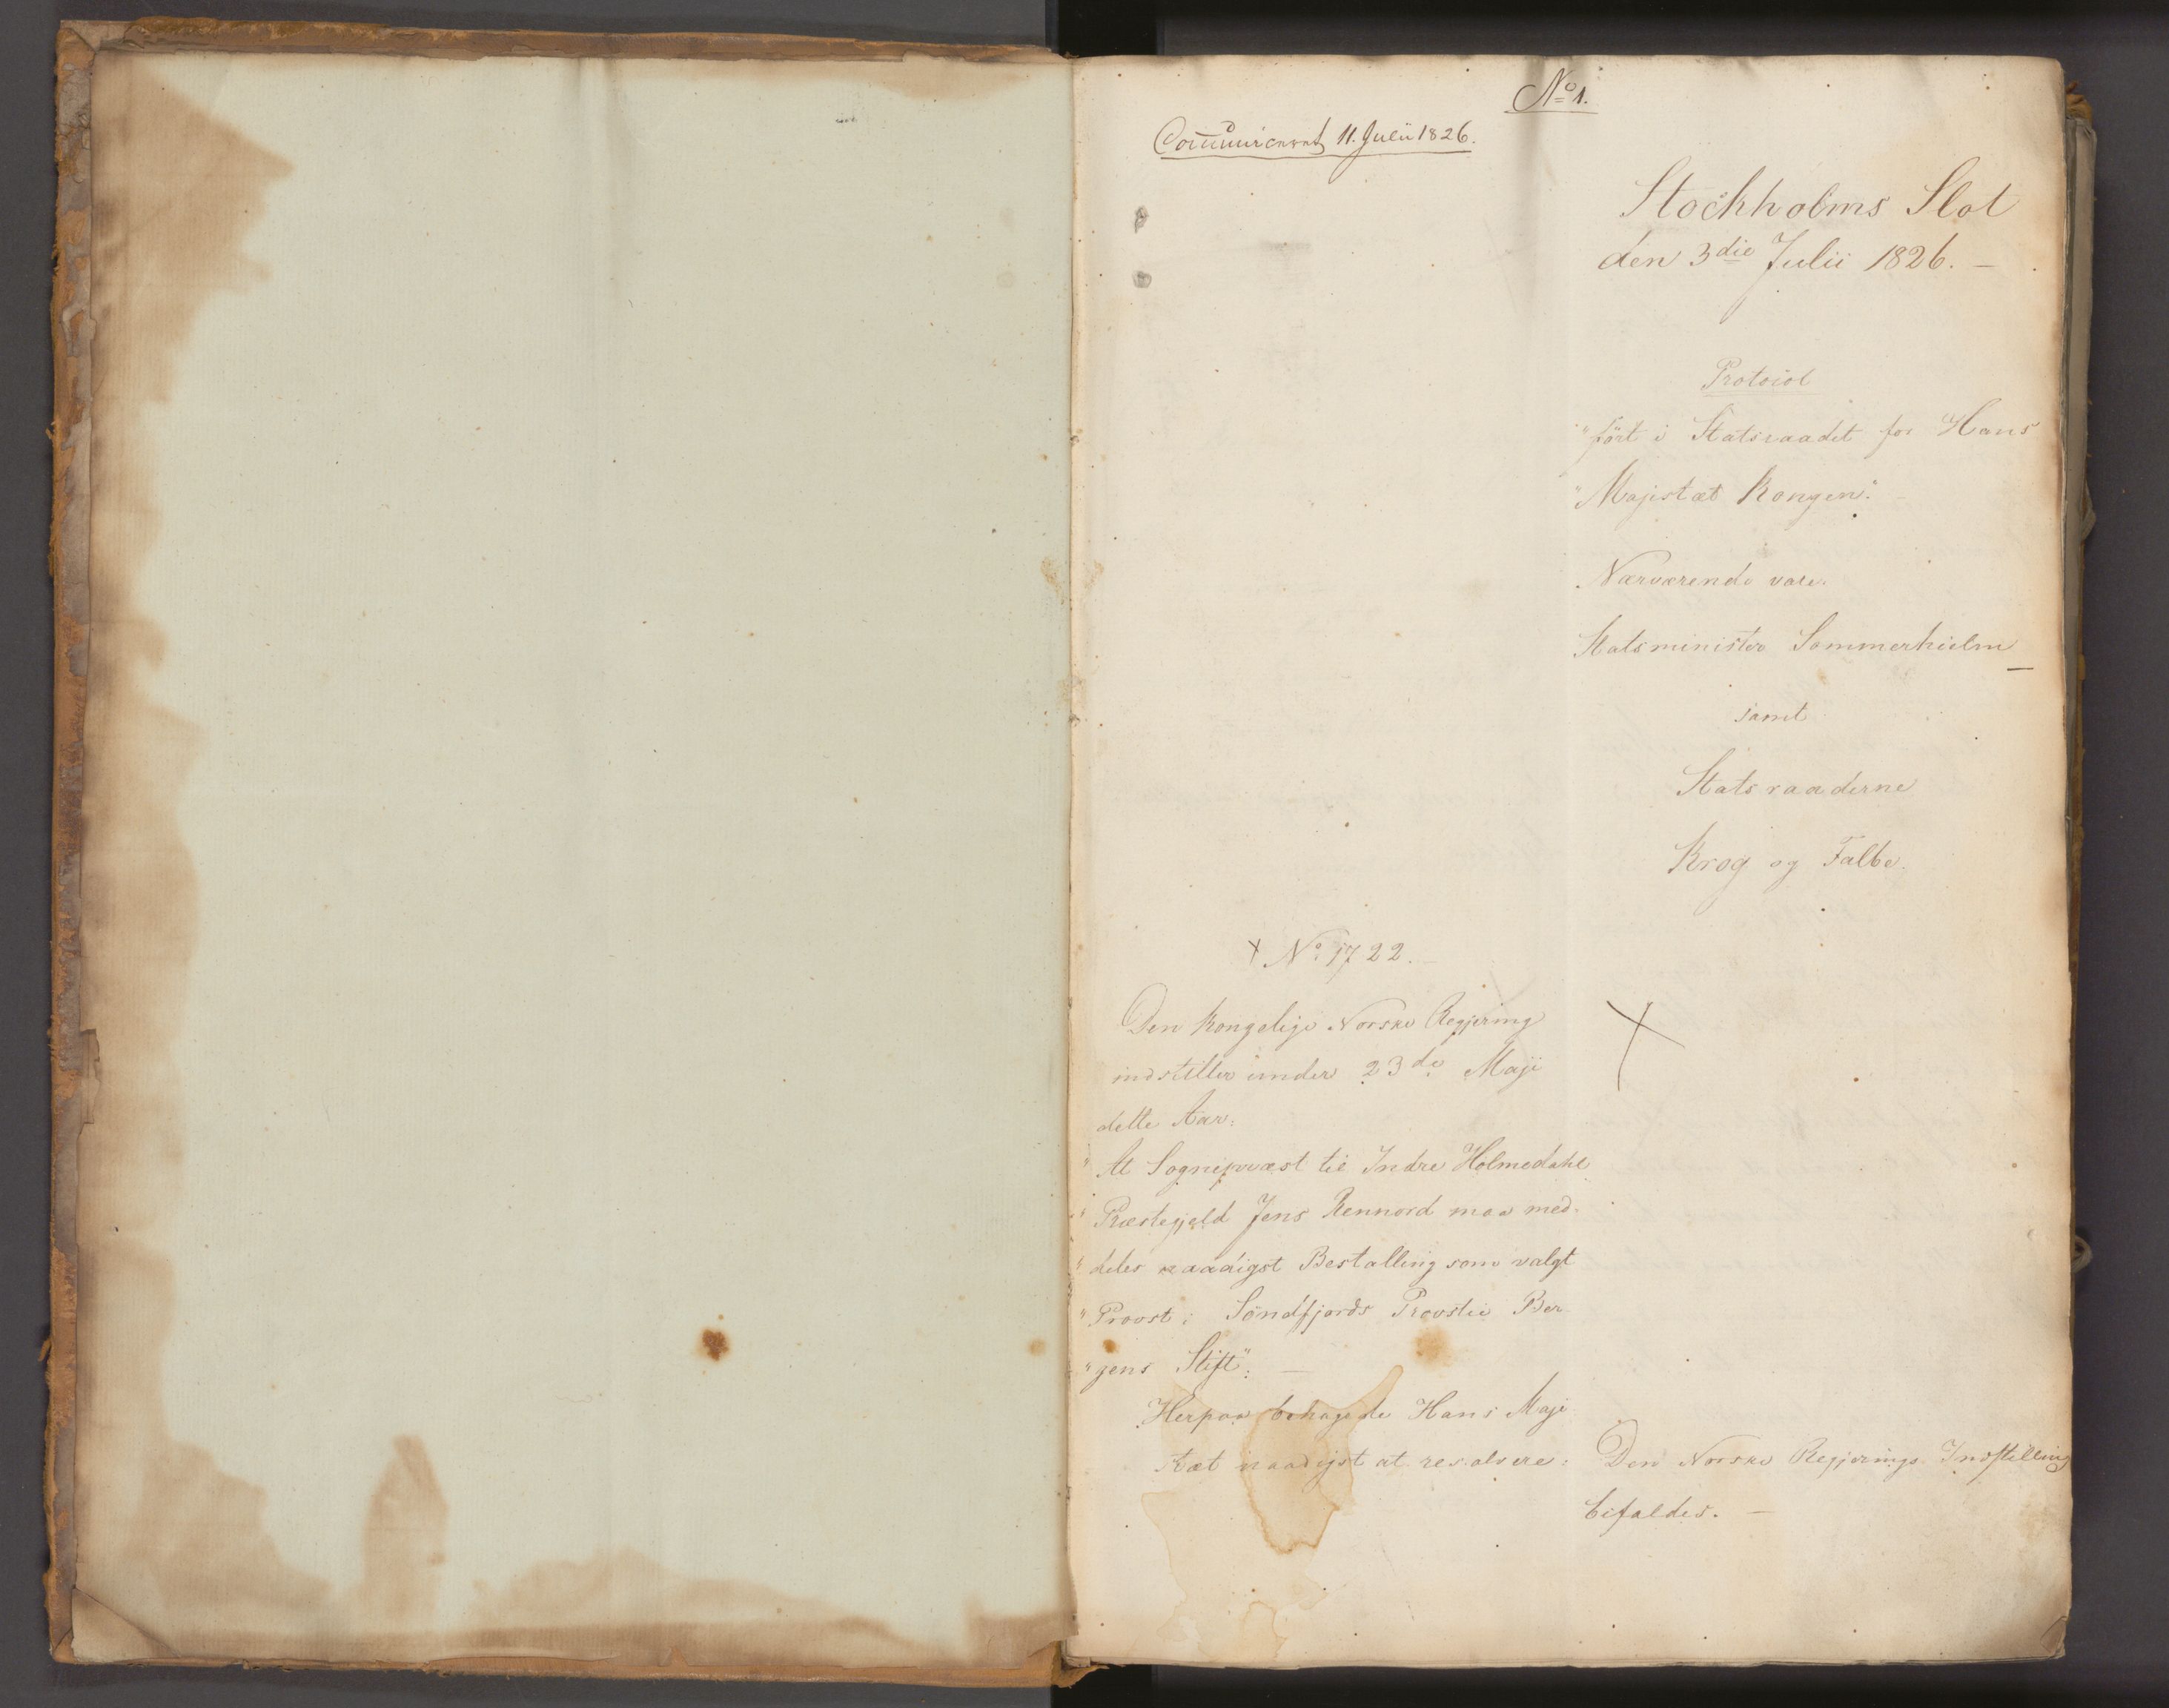 No 1.
Communiceret 11. Julii 1826.
Stockholms Slot
den 3die Julii 1826. —
Protocol
"ført i Statsraadet for Hans
"Majestæt Kongen".
Nærværende vare.
Statsminister Sommerhielm
samt
Statsraaderne
Krog og Falbe.
No 1722. —
Den Kongelige Norske Regjering
indstiller under 23de Maji
dette Aar:
"At Sognepræst til Indre Holmedahl
"Præstegjeld Jens Rennord maa med-
"deles naadigst Bestalling som valgt
"Provst i Söndfjords Provstie Ber-
"gens Stift": —
Herpaa behagede Hans Maje
stæt naadigst at resolvere:
Den Norske Regjerings Indstilling
bifaldes. —